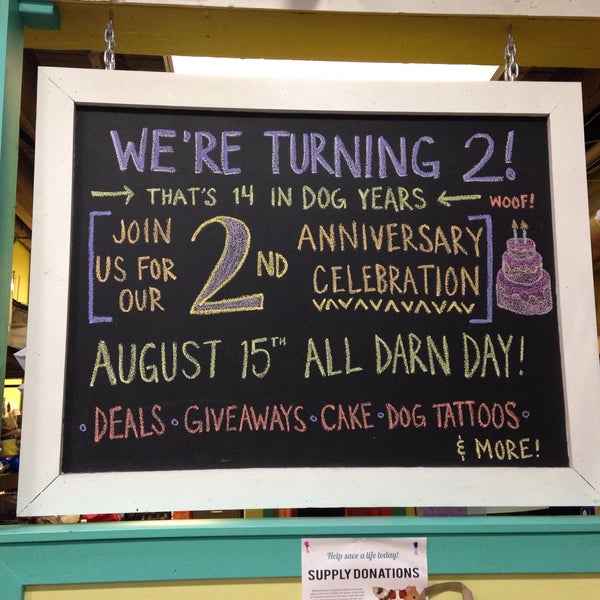 WE'RE TURNING 2!
→ THAT'S 14 IN DOG YEARS ← WOOF!
[JOIN US FOR OUR 2ND ANNIVERSARY CELEBRATION]
AUGUST 15TH ALL DARN DAY!
• DEALS • GIVEAWAYS • CAKE • DOG TATTOOS •
& MORE!
Help save a life today!
SUPPLY DONATIONS